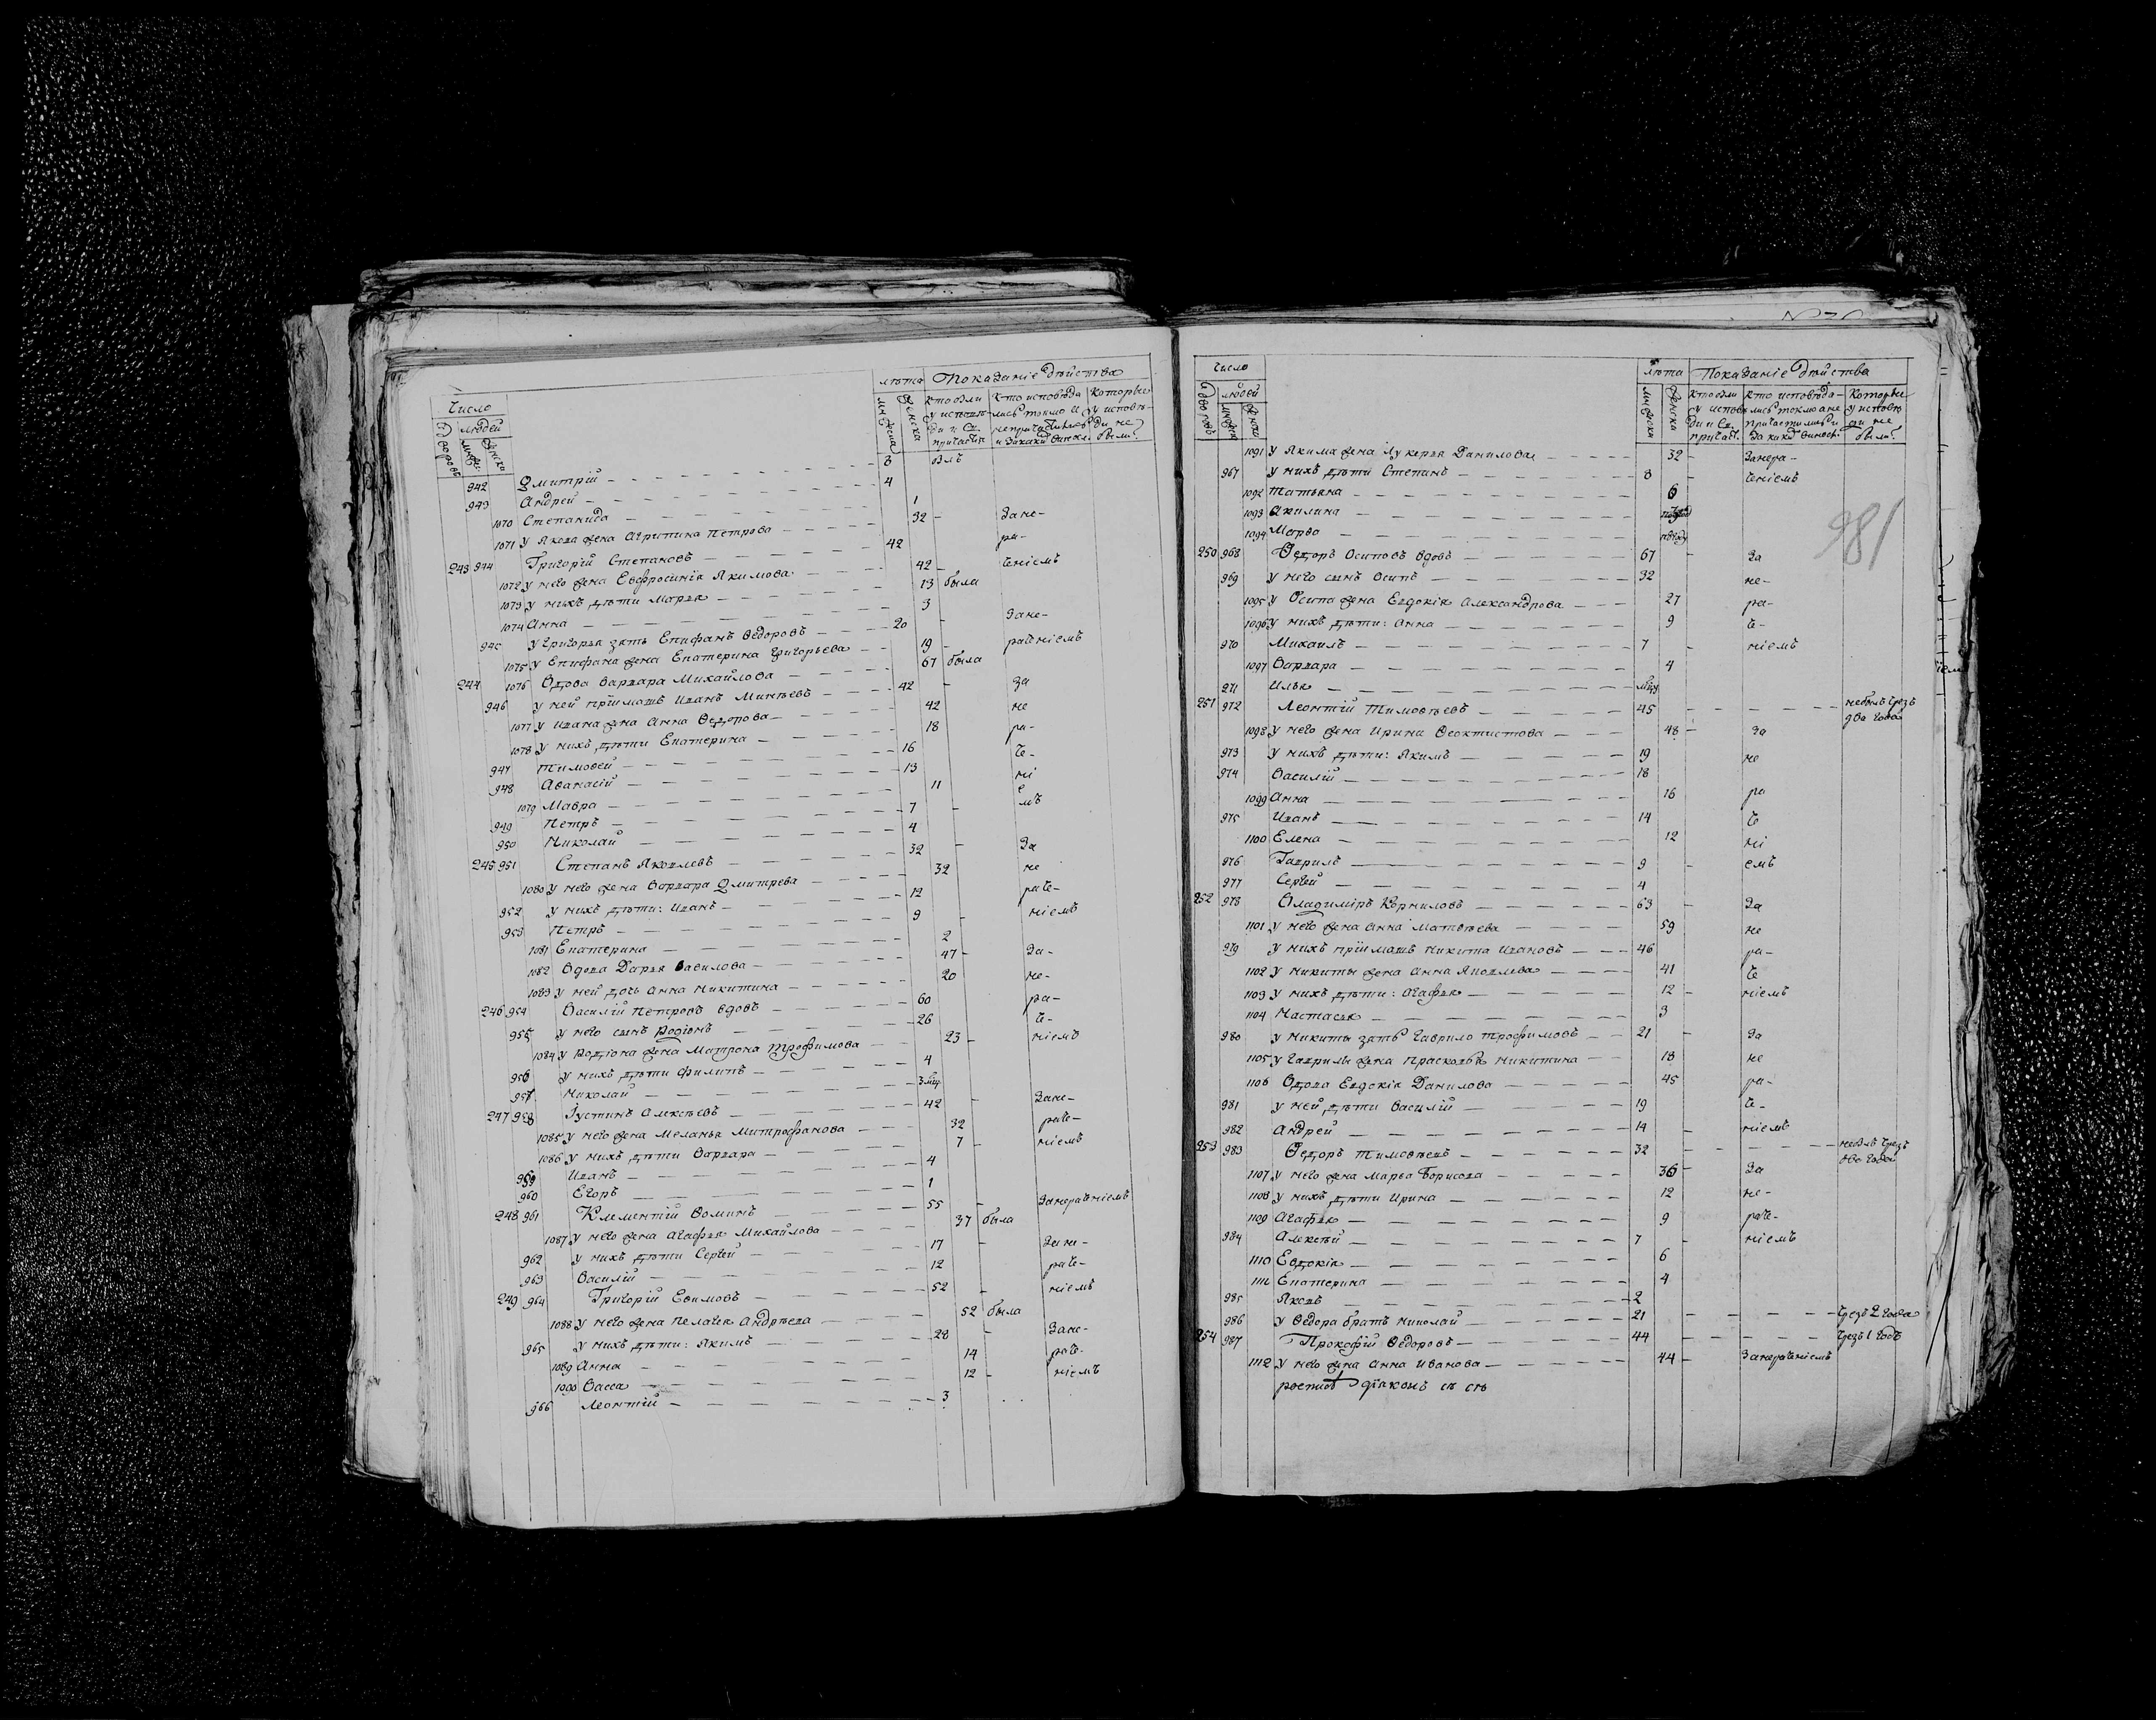 Число
лѣта Показаніе дѣйства
дворовъ людей
мужес: женска
мужеска женска
кто были у исповѣди и Св. причастія
кто исповѣдались токмо и не причастились и за какою виною
которые у исповѣди не были
942 Дмитрій — 8 былъ
943 Андрей — 4
1070 Степанида — 1
1071 У Якова жена Агрипина Петрова — 32 – Зане-
243 944 Григорій Степановъ — 42 ра-
1072 у него жена Евфросинія Якимова — 42 – ченіемъ
1073 у нихъ дѣти Марья — 13 была
1074 Анна — 3
945 У Григорья зять Епифанъ Ѳедоровъ — 20 – Зане-
1075 У Епифана жена Екатерина Григорьева — 19 – раченіемъ
244 1076 Вдова Варвара Михайлова — 67 была
946 У ней пріимашъ Иванъ Минѣевъ — 42 – за
1077 У Ивана жена Анна Ѳедорова — 42 не
1078 У нихъ дѣти Екатерина — 18 ра-
947 Тимоѳей — 16 че-
948 Аѳанасій — 13 ні
1079 Мавра — 11 е
949 Петръ — 7 – мъ
950 Николай — 4
245 951 Степанъ Яковлевъ — 32 – За
1080 У него жена Варвара Дмитрева — 32 не
952 У нихъ дѣти: Иванъ — 12 раче-
953 Петръ — 9 – ніемъ
1081 Екатерина — 2
1082 Вдова Дарья Вавилова — 47 – За-
1083 У ней дочь Анна Никитина — 20 не-
246 954 Василій Петровъ вдовъ — 60 ра-
955 У него сынъ Родіонъ — 26 че-
1084 У Родіона жена Матрона Трофимова — 23 – ніемъ
956 У нихъ дѣти Филипъ — 4
957 Николай — 3 мцъ
247 958 Іустинъ Алексѣевъ — 42 – Зане-
1085 У него жена Меланья Митрофанова — 32 раче-
1086 У нихъ дѣти Варвара — 7 – ніемъ
959 Иванъ — 4
960 Егоръ — 1
248 961 Клементій Ѳоминъ — 55 – Занераченіемъ
1087 У него жена Агафья Михайлова — 37 была
962 У нихъ дѣти Сергѣй — 17 – Зане-
963 Василій — 12 раче-
249 964 Григорій Евимовъ — 52 – ніемъ
1088 У него жена Пелагея Андрѣева — 52 была
965 У нихъ дѣти: Якимъ — 28 – Зане-
1089 Анна — 14 раче-
1090 Васса — 12 – ніемъ
966 Леонтій — 3
Число
лѣта Показаніе дѣйства
дворовъ людей
мужеска женска
мужеска женска
кто были у исповѣди и Св. причаст.
кто исповѣдались токмо а не причастились и за какою виност.
которые у исповѣди не были
1091 У Якима жена Лукерья Данилова — 32 – Занера-
967 У нихъ дѣти Степанъ — 8 – ченіемъ
1092 Татьяна — 6
1093 Акилина —
1094 Марѳа —
250 968 Ѳедоръ Осиповъ вдовъ — 67 – За
981
969 У него сынъ Осипъ — 32 не-
1095 У Осипа жена Евдокія Александрова — 27 ра-
1096 У нихъ дѣти: Анна — 9 че-
970 Михаилъ — 7 – ніемъ
1097 Варвара — 4
971 Илья —
251 972 Леонтій Тимоѳеевъ — 45 – небылъ чрезъ два года
1098 У него жена Ирина Ѳеоктистова — 48 – За
973 У нихъ дѣти: Якимъ — 19 не
974 Василій — 18
1099 Анна — 16 ра
975 Иванъ — 14 че
1100 Елена — 12 ні
976 Гаврилъ — 9 – емъ
977 Сергѣй — 4
252 978 Владиміръ Корниловъ — 63 – За
1101 У него жена Анна Матвѣева — 59 не
979 У нихъ пріимашъ Никита Ивановъ — 46 ра-
1102 У Никиты жена Анна Яковлева — 41 че
1103 У нихъ дѣти: Агафья — 12 – ніемъ
1104 Настасья — 3
980 У Никиты зять Гаврило Трофимовъ — 21 – За
1105 У Гаврилы жена Прасковья Никитина — 18 не
1106 Вдова Евдокія Данилова — 45 ра-
981 У ней дѣти Василій — 19 че-
982 Андрей — 14 – ніемъ
253 983 Ѳедоръ Тимоѳеевъ — 32 – небылъ чрезъ два года
1107 У него жена Марья Борисова — 36 – За
1108 У нихъ дѣти Ирина — 12 не-
1109 Агафья — 9 раче-
984 Алексѣй — 7 – ніемъ
1110 Евдокія — 6
1111 Екатерина — 4
985 Яковъ — 2
986 У Ѳедора братъ Николай — 21 – чрезъ 2 года
254 987 Прокофій Ѳедоровъ — 44 – чрезъ 1 годъ
1112 У него жена Анна Иванова — 44 – Занераченіемъ
роспись діаконъ